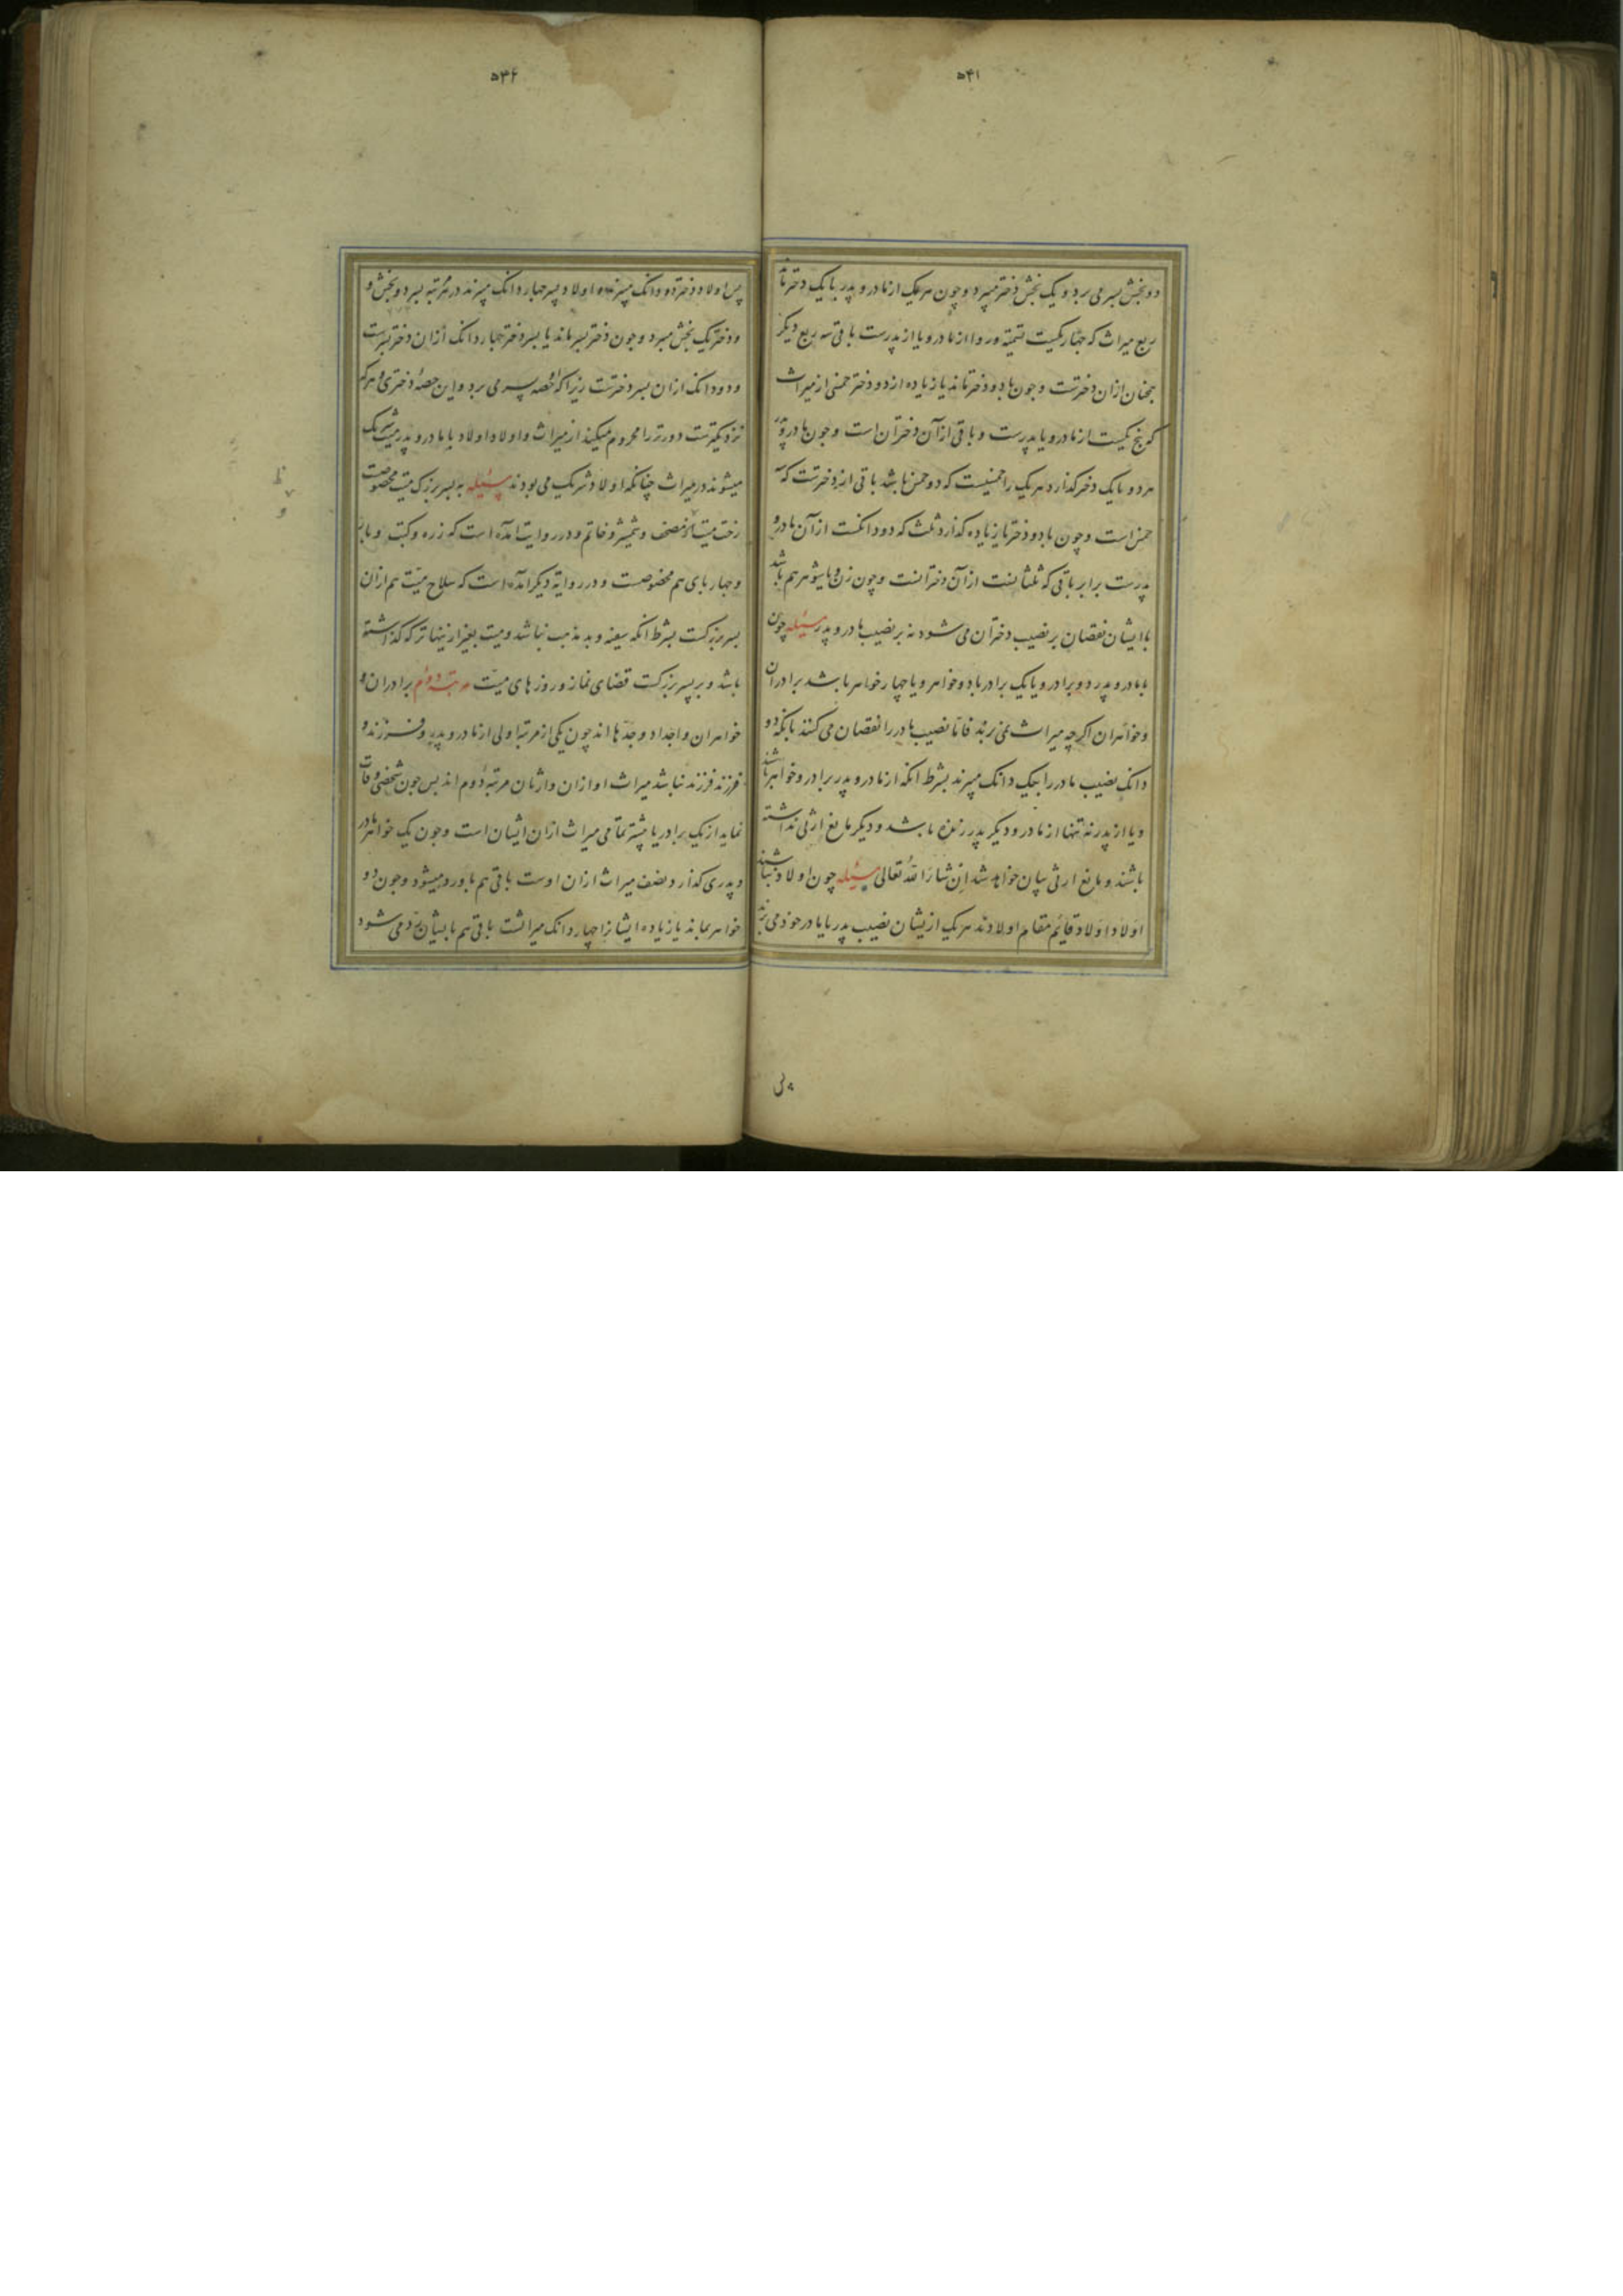 ۵۴۱
دو بخش پسر می برد و یک بخش دختر میبرد و چون هر یک از مادر و پدر با یک دختر ماند
ربع میراث که چهار یکیست تسمیه و ردا از مادر و یا از پدرست باقی سه ربع دیکر
همچنان ازان دخترست و چون با دو دختر ماند یا زیاده از دو دختر خمس از میراث
که پنج یکیست از مادر و یا پدرست و باقی ازآن دختران است و چون مادر و پدر
هر دو با یک دختر کذارد هر یک را خمسیست که دو خمس باشد باقی از دخترست که سه
خمس است و چون با دو دختر یا زیاده کذارد ثلث که دو دانکست ازآن مادر و
پدرست برابر باقی که ثلثانست ازآن دخترانست و چون زن و یا شوهر هم باشد
با ایشان نقصان بر نصیب دختران می شود نه بر نصیب مادر و پدر مسئله چون
با مادر و پدر دو برادر و یا یک برادر با دو خواهر و یا چهار خواهر باشد برادران
و خواهران اکرچه میراث نمی برند فاما نصیب مادر را نقصان می کنند بانکه دو
دانک نصیب مادر را بیک دانک میبرند بشرط انکه از مادر و پدر برادر و خواهر باشند
و یا از پدر نه تنها از مادر و دیکر پدر زنده باشد و دیکر مانع ارثی نداشته
باشند و مانع ارثی بیان خواهد شد ان شاء الله تعالی مسئله چون اولاد نباشند
اولاد اولاد قایم مقام اولادند هر یک ازیشان نصیب پدر یا مادر خود می برند
۵۴۲
پس اولاد دختر دو دانک میبرند و اولاد پسر چهار دانک میبرند در هر مرتبه پسر دو بخش و
و دختر یک بخش میبرد و چون دختر پسر ماند یا پسر دختر چهار دانک ازان دختر پسرست
و دو دانک ازان پسر دخترست زیرا که حصه پسر می برد و این حصه دختری و هر که
نزدیکترست دورتر را محروم میکند از میراث و اولاد اولاد با مادر و پدر میت شریک
میشوند در میراث چنانکه اولاد شریک می بودند مسئله به پسر بزرک میت مخصوصست
رخت میت و مصحف و شمشیر و خاتم و در روایت آمده است که زره و کتب و
و چهارپای هم مخصوصست و در روایة دیکر آمده است که سلاح میت هم ازان
پسر بزرکست بشرط انکه سفیه و بد مذهب نباشد و میت بغیر از ینها ترکه کذاشته
باشد و بر پسر بزرکست قضای نماز و روزهای میت مرتبه دوم برادران و
خواهران و اجداد و جدها اند چون یکی از مرتبه اولی از مادر و پدر و فرزند و
فرزند فرزند نباشد میراث او ازان وارثان مرتبه دوم اند پس چون شخصی وفات
نماید از یک برادر یا بیشتر تمامی میراث ازان ایشان است و چون یک خواهر مادر
و پدری کذارد نصف میراث ازان اوست باقی هم باو رد میشود و چون دو
خواهر بماند یا زیاده ایشانرا چهار دانک میراثست باقی هم بایشان رد می شود